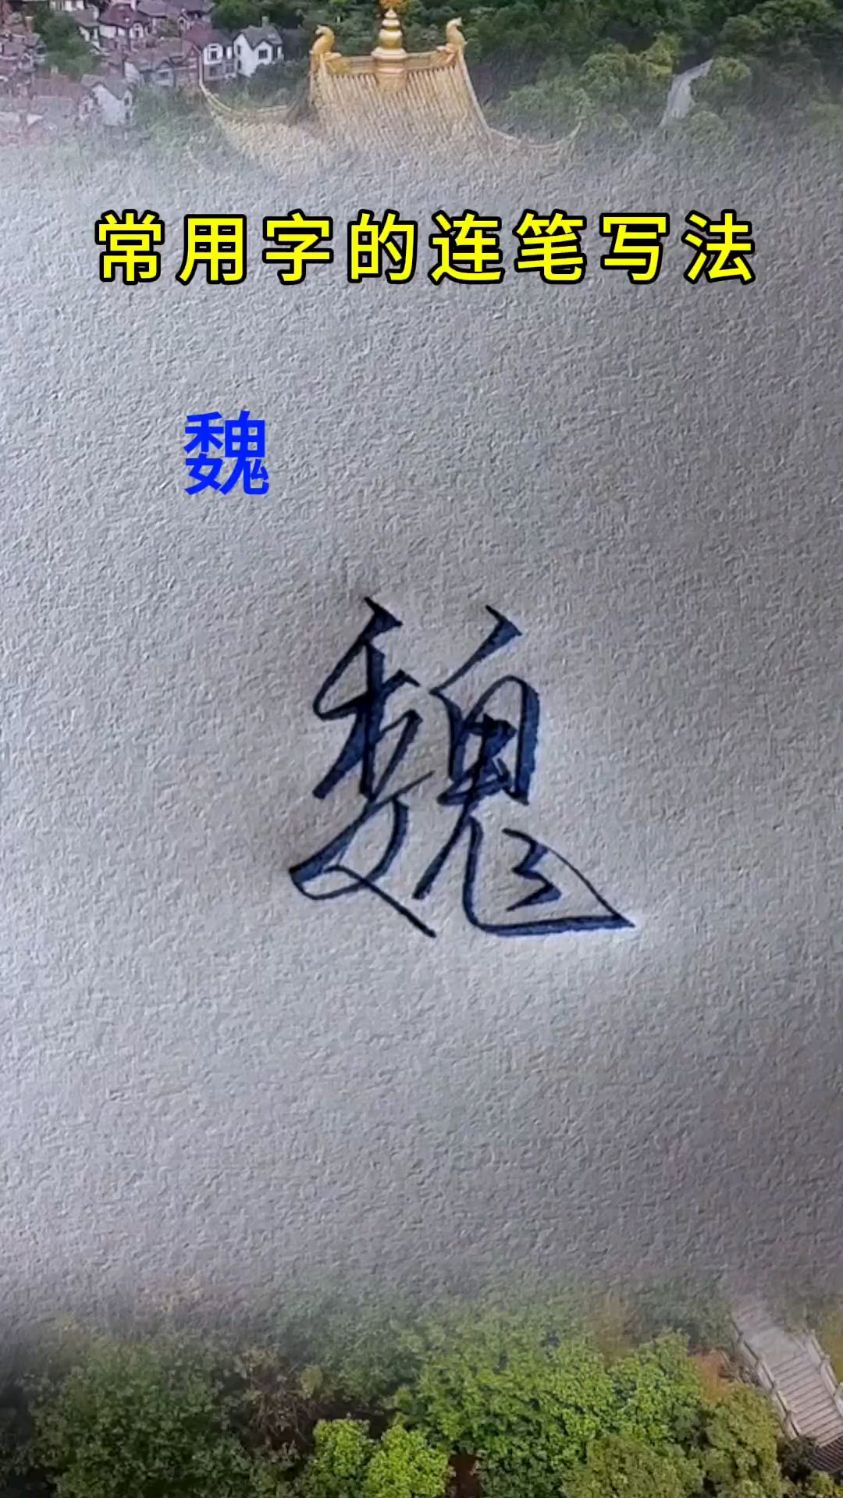 常用字的连笔写法
魏
魏